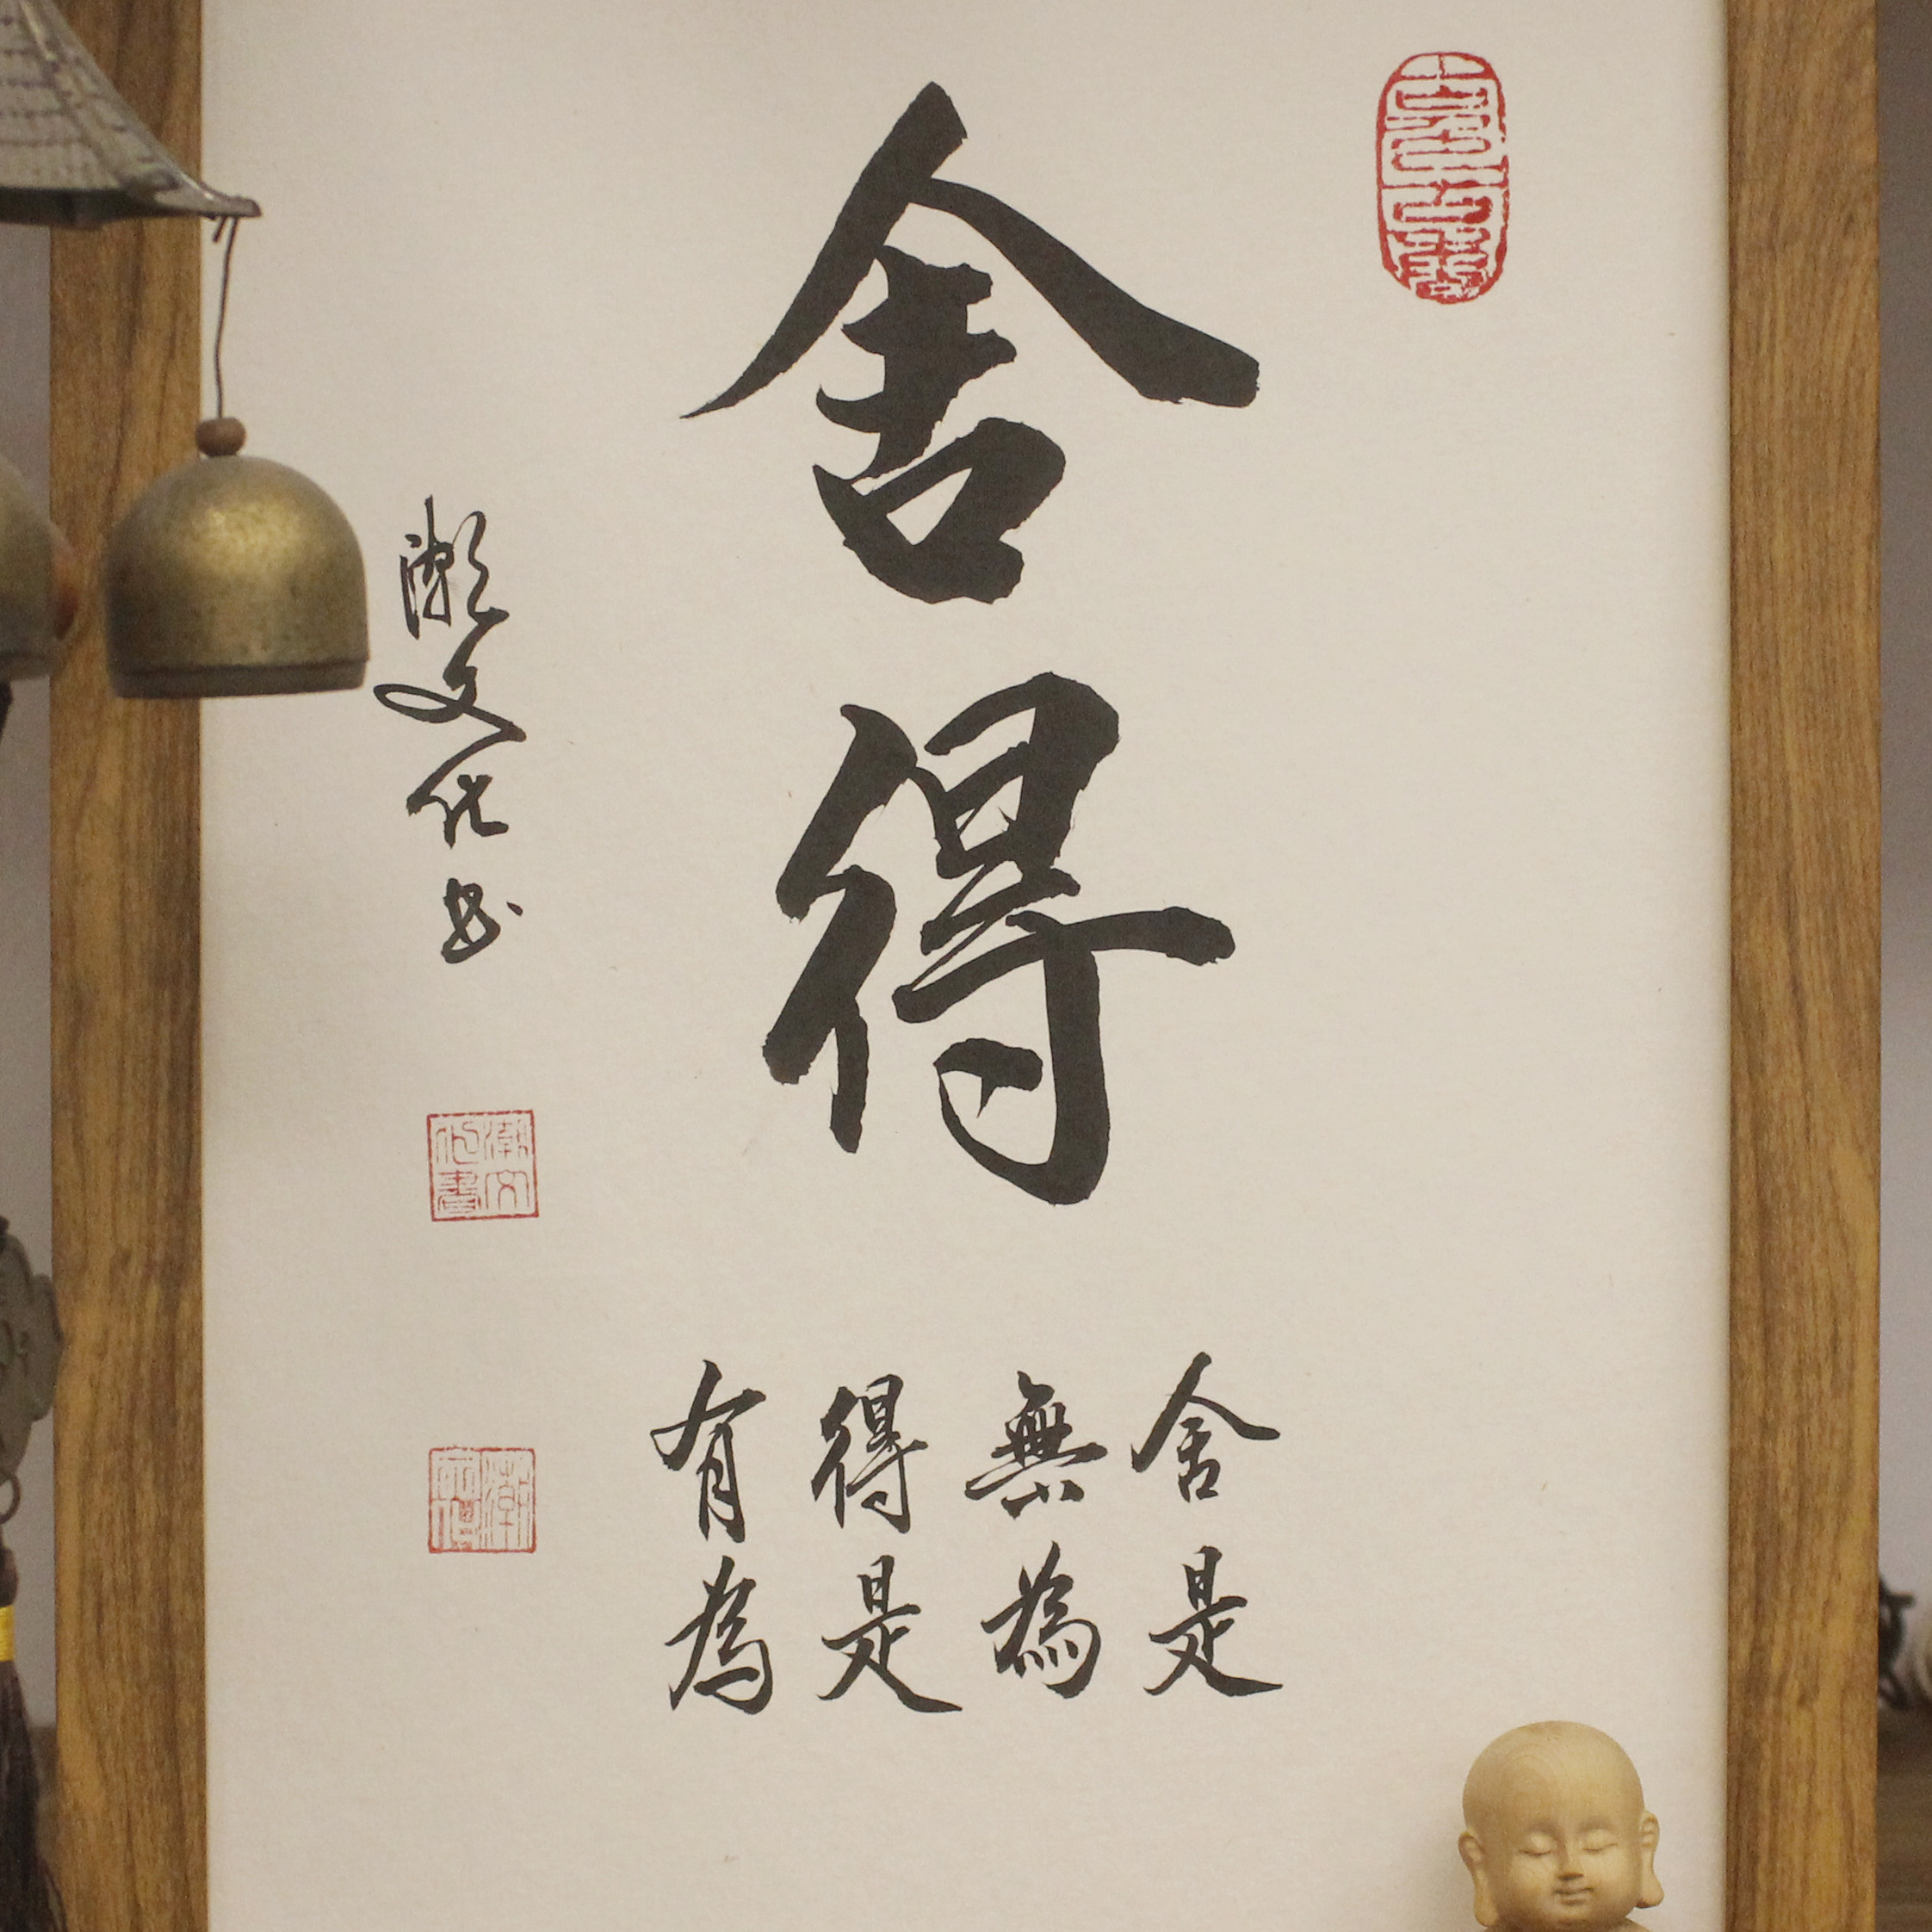 舍得
舍是
無為
得是
有為
潮文化書
潮文化書